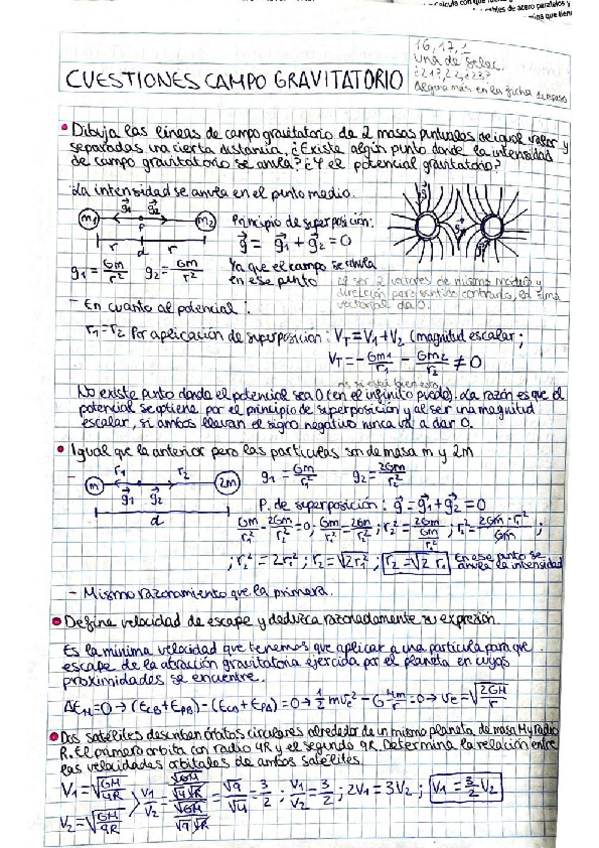 cables de acero paralelos y
16, 17, 1
una de Selec.
Alguna más en la ficha de repaso
CUESTIONES CAMPO GRAVITATORIO
• Dibuja las líneas de campo gravitatorio de 2 masas puntuales de igual valor y
separadas una cierta distancia. ¿Existe algún punto donde la intensidad
de campo gravitatorio se anula? ¿Y el potencial gravitatorio?
La intensidad se anula en el punto medio.
m1 g⃗1 g⃗2 P m2
r d r
Principio de superposición:
g⃗ = g⃗1 + g⃗2 = 0
g1 = Gm/r² g2 = Gm/r²
Ya que el campo se anula
en ese punto
al ser 2 valores de mismo modulo y
dirección pero sentido contrario, la suma
vectorial da 0.
- En cuanto al potencial:
r1 = r2 Por aplicación de superposición: VT = V1 + V2 (magnitud escalar;
VT = -Gm1/r1 - Gm2/r2 ≠ 0
No existe punto donde el potencial sea 0 (en el infinito puede). La razón es que el
potencial se obtiene por el principio de superposición y al ser una magnitud
escalar, si ambos llevan el signo negativo nunca va a dar 0.
• Igual que la anterior pero las partículas son de masa m y 2m
- m r1 g⃗1 g⃗2 r2 2m
d
g1 = Gm/r1² g2 = 2Gm/r2²
P. de superposición: g⃗ = g⃗1 + g⃗2 = 0
Gm/r1² - 2Gm/r2² = 0; Gm/r1² = 2Gm/r2²; r2² = 2Gm/(Gm/r1²); r2² = 2Gm·r1²/Gm;
; r2² = 2r1²; r2 = √2r1²; r2 = √2 r1 En ese punto se
anula la intensidad
- Mismo razonamiento que la primera.
• Define velocidad de escape y deduzca razonadamente su expresión.
Es la mínima velocidad que tenemos que aplicar a una partícula para que
escape de la atracción gravitatoria ejercida por el planeta en cuyas
proximidades se encuentre.
ΔEM = 0 → (ECB + EPB) - (ECA + EPA) = 0 → ½ mve² - G Mm/r = 0 → ve = √(2GM/r)
• Dos satélites describen órbitas circulares alrededor de un mismo planeta de masa M y radio
R. El primero orbita con radio 4R y el segundo 9R. Determina la relación entre
las velocidades orbitales de ambos satélites.
V1 = √(GM/4R)
V2 = √(GM/9R)
V1/V2 = (√GM/√4√R)/(√GM/√9√R) = √9/√4 = 3/2; V1/V2 = 3/2; 2V1 = 3V2; V1 = 3/2 V2